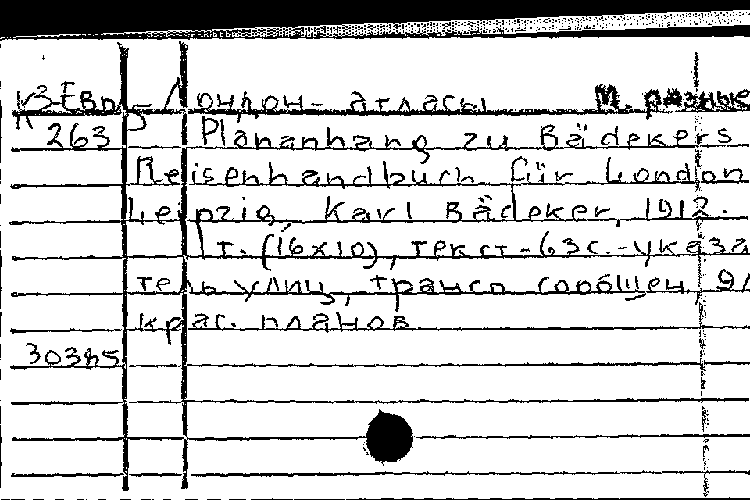 К3-Евр.- Лондон- атласы М. разные
К 263 Plananhang zu Bädekers
Reisenhandbuch für London
Leipzig, Karl Bädeker, 1912.
1т. (16x10), текст-63с.-указа
тель улиц, трансп сообщен, 9
крас. планов